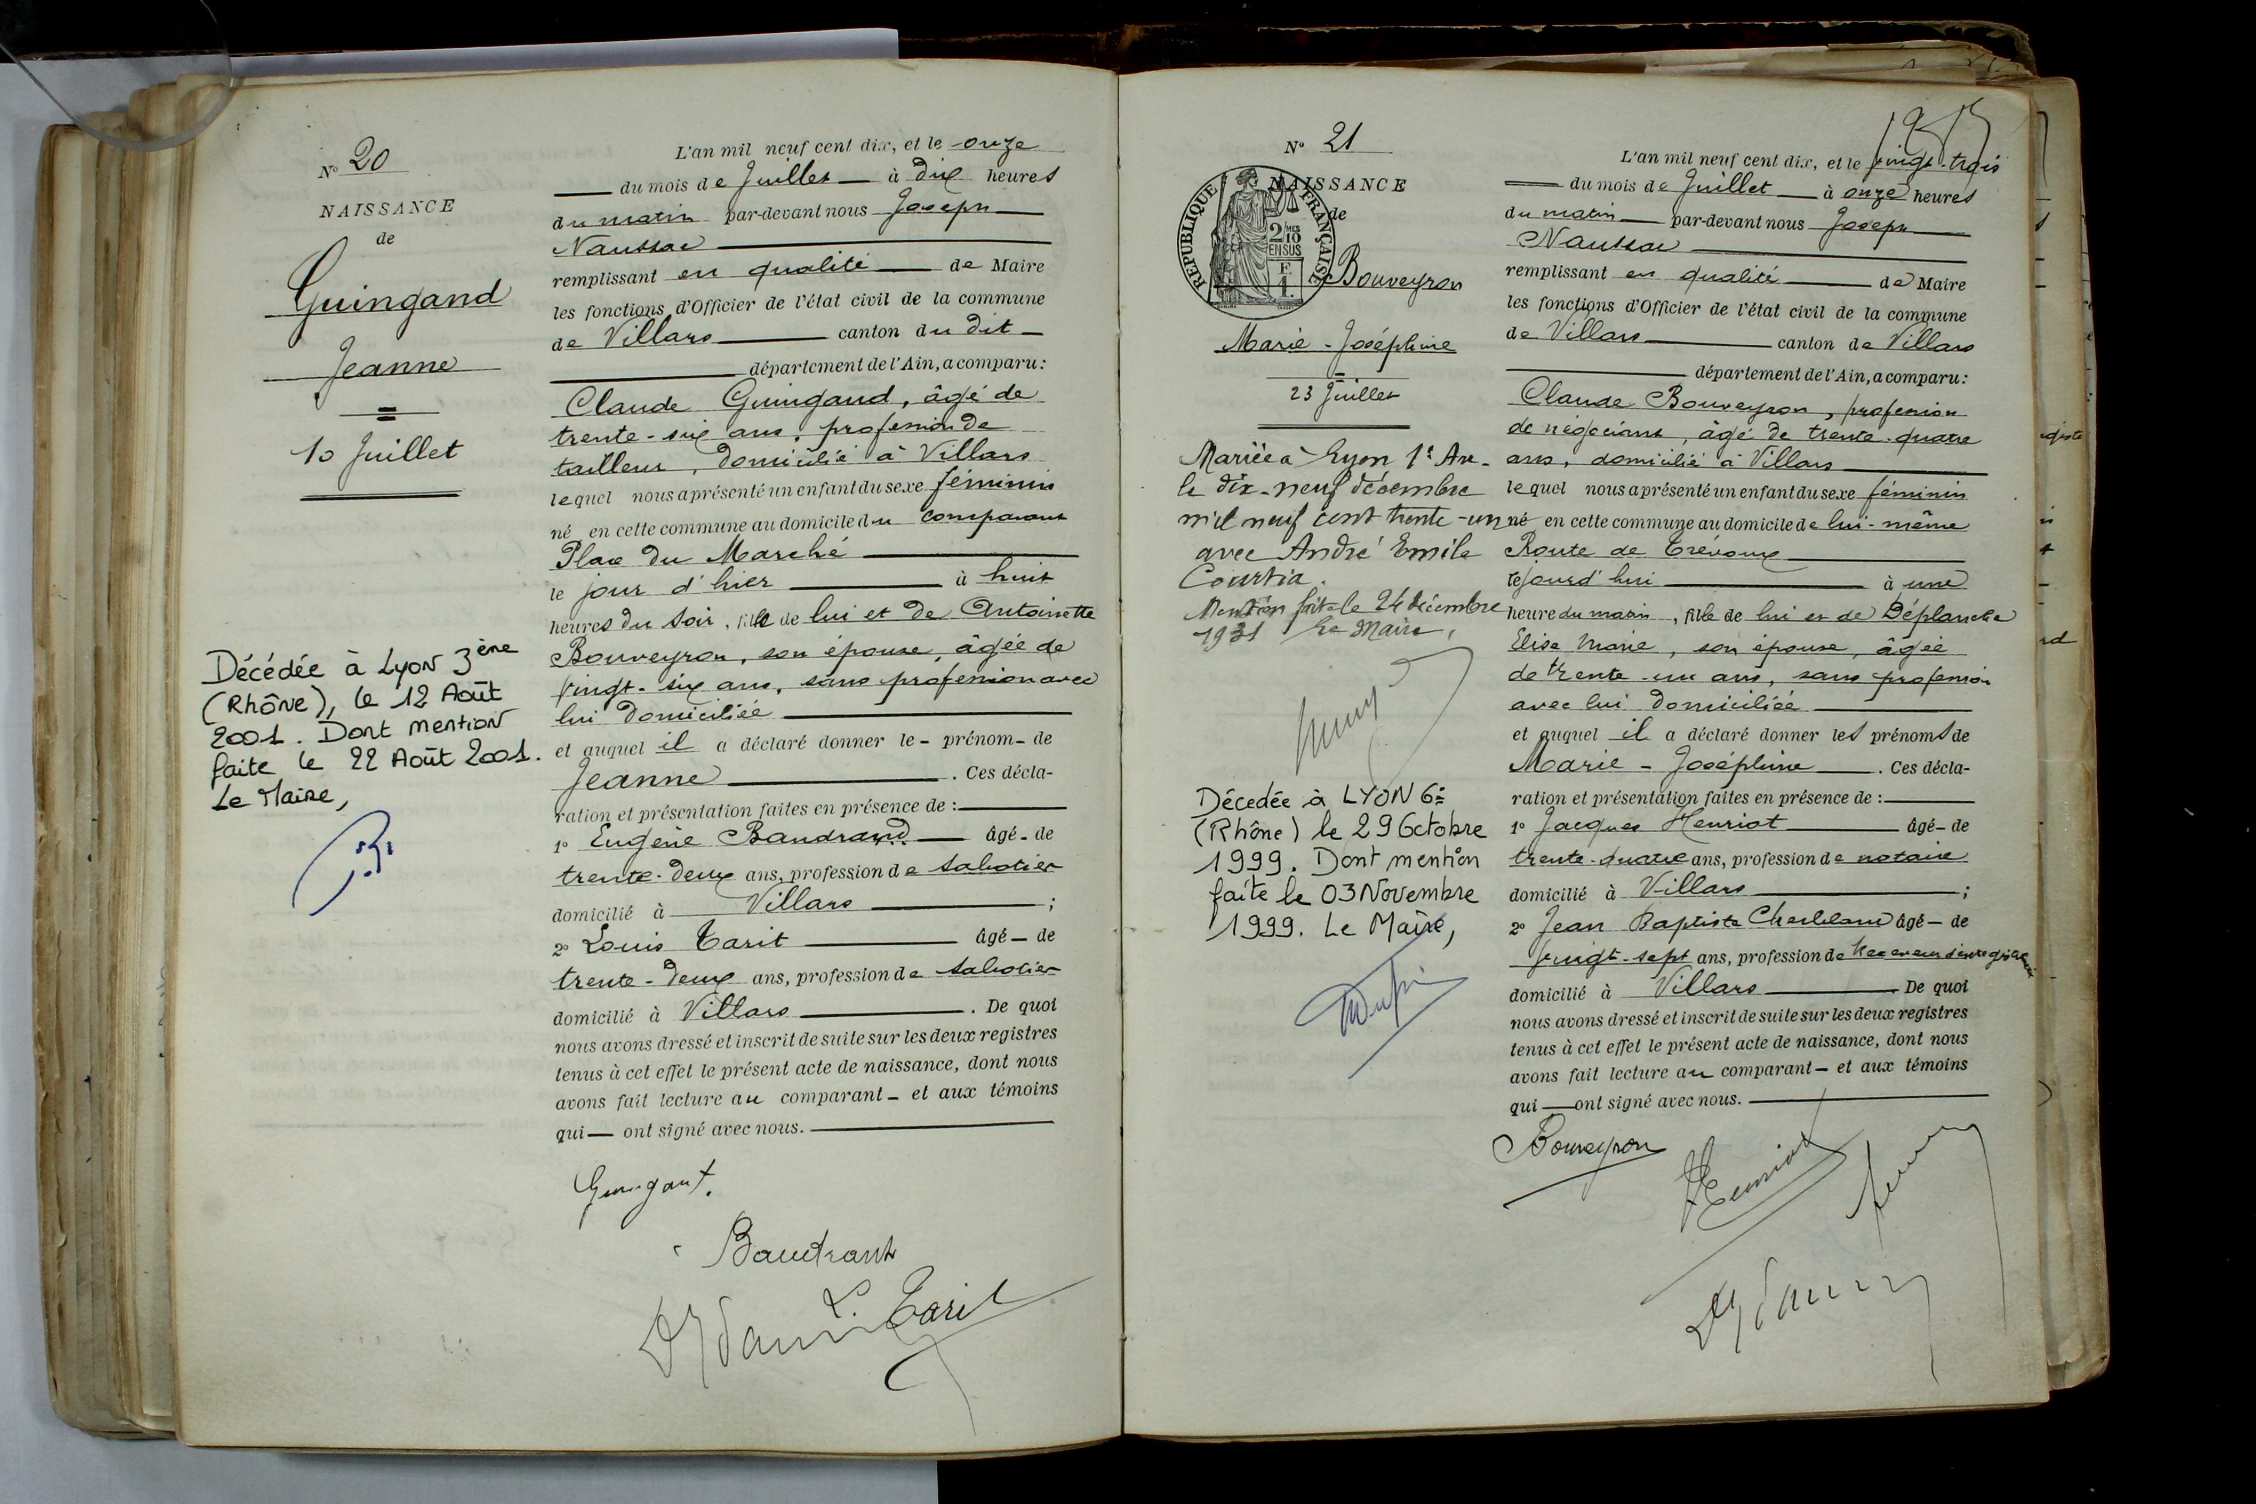 N° 20
NAISSANCE
de
Guingand
Jeanne
10 Juillet
Décédée à Lyon 3ème
(Rhône), le 12 Août
2001. Dont mention
faite le 22 Août 2001.
Le Maire,
L'an mil neuf cent dix, et le onze
du mois de Juillet à dix heures
du matin par-devant nous Joseph
Naussac
remplissant en qualité de Maire
les fonctions d'Officier de l'état civil de la commune
de Villars canton du dit
département de l'Ain, a comparu :
Claude Guingand, âgé de
trente-six ans, profession de
tailleur, domicilié à Villars
lequel nous a présenté un enfant du sexe féminin
né en cette commune au domicile du comparant
Place du Marché
le jour d'hier à huit
heures du soir, fille de lui et de Antoinette
Bouveyron, son épouse, âgée de
vingt-six ans, sans profession avec
lui domiciliée
et auquel il a déclaré donner le - prénom - de
Jeanne . Ces décla-
ration et présentation faites en présence de :
1° Eugène Baudrand âgé - de
trente-deux ans, profession de sabotier
domicilié à Villars ;
2° Louis Tarit âgé - de
trente-deux ans, profession de sabotier
domicilié à Villars . De quoi
nous avons dressé et inscrit de suite sur les deux registres
tenus à cet effet le présent acte de naissance, dont nous
avons fait lecture au comparant - et aux témoins
qui — ont signé avec nous.
Guingant.
Baudrant
L. Tarit
N° 21
NAISSANCE
de
REPUBLIQUE FRANÇAISE
2/10
MES
EN SUS
F.
1.
Bouveyron
Marie-Joséphine
23 Juillet
Mariée à Lyon 1er Arr.
le dix-neuf décembre
mil neuf cent trente-un
avec André Emile
Courtia.
Mention faite le 24 décembre
1931 Le Maire,
Décedée à LYON 6è
(Rhône) le 29 Octobre
1999. Dont mention
faite le 03 Novembre
1999. Le Maire,
L'an mil neuf cent dix, et le vingt-trois
du mois de Juillet à onze heures
du matin par-devant nous Joseph
Naussac
remplissant en qualité de Maire
les fonctions d'Officier de l'état civil de la commune
de Villars canton de Villars
département de l'Ain, a comparu :
Claude Bouveyron, profession
de négociant, âgé de trente-quatre
ans, domicilié à Villars
lequel nous a présenté un enfant du sexe féminin
né en cette commune au domicile de lui-même
Route de Trévoux
cejourd'hui à une
heure du matin, fille de lui et de Déplanche
Elise Marie, son épouse, âgée
de trente-un ans, sans profession
avec lui domiciliée
et auquel il a déclaré donner les prénoms de
Marie-Joséphine . Ces décla-
ration et présentation faites en présence de :
1° Jacques Henriot âgé - de
trente-quatre ans, profession de notaire
domicilié à Villars ;
2° Jean Baptiste âgé - de
vingt-sept ans, profession de
domicilié à Villars De quoi
nous avons dressé et inscrit de suite sur les deux registres
tenus à cet effet le présent acte de naissance, dont nous
avons fait lecture au comparant - et aux témoins
qui — ont signé avec nous.
Bouveyron
Henriot